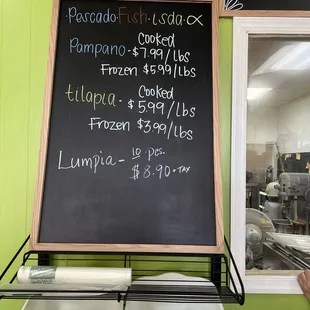 Pescado·Fish·isda·∝
Cooked
Pampano - $7.99/lbs
Frozen $5.99/lbs
tilapia - Cooked
$5.99/lbs
Frozen $3.99/lbs
Lumpia - 10 pcs.
$8.90 + TAX